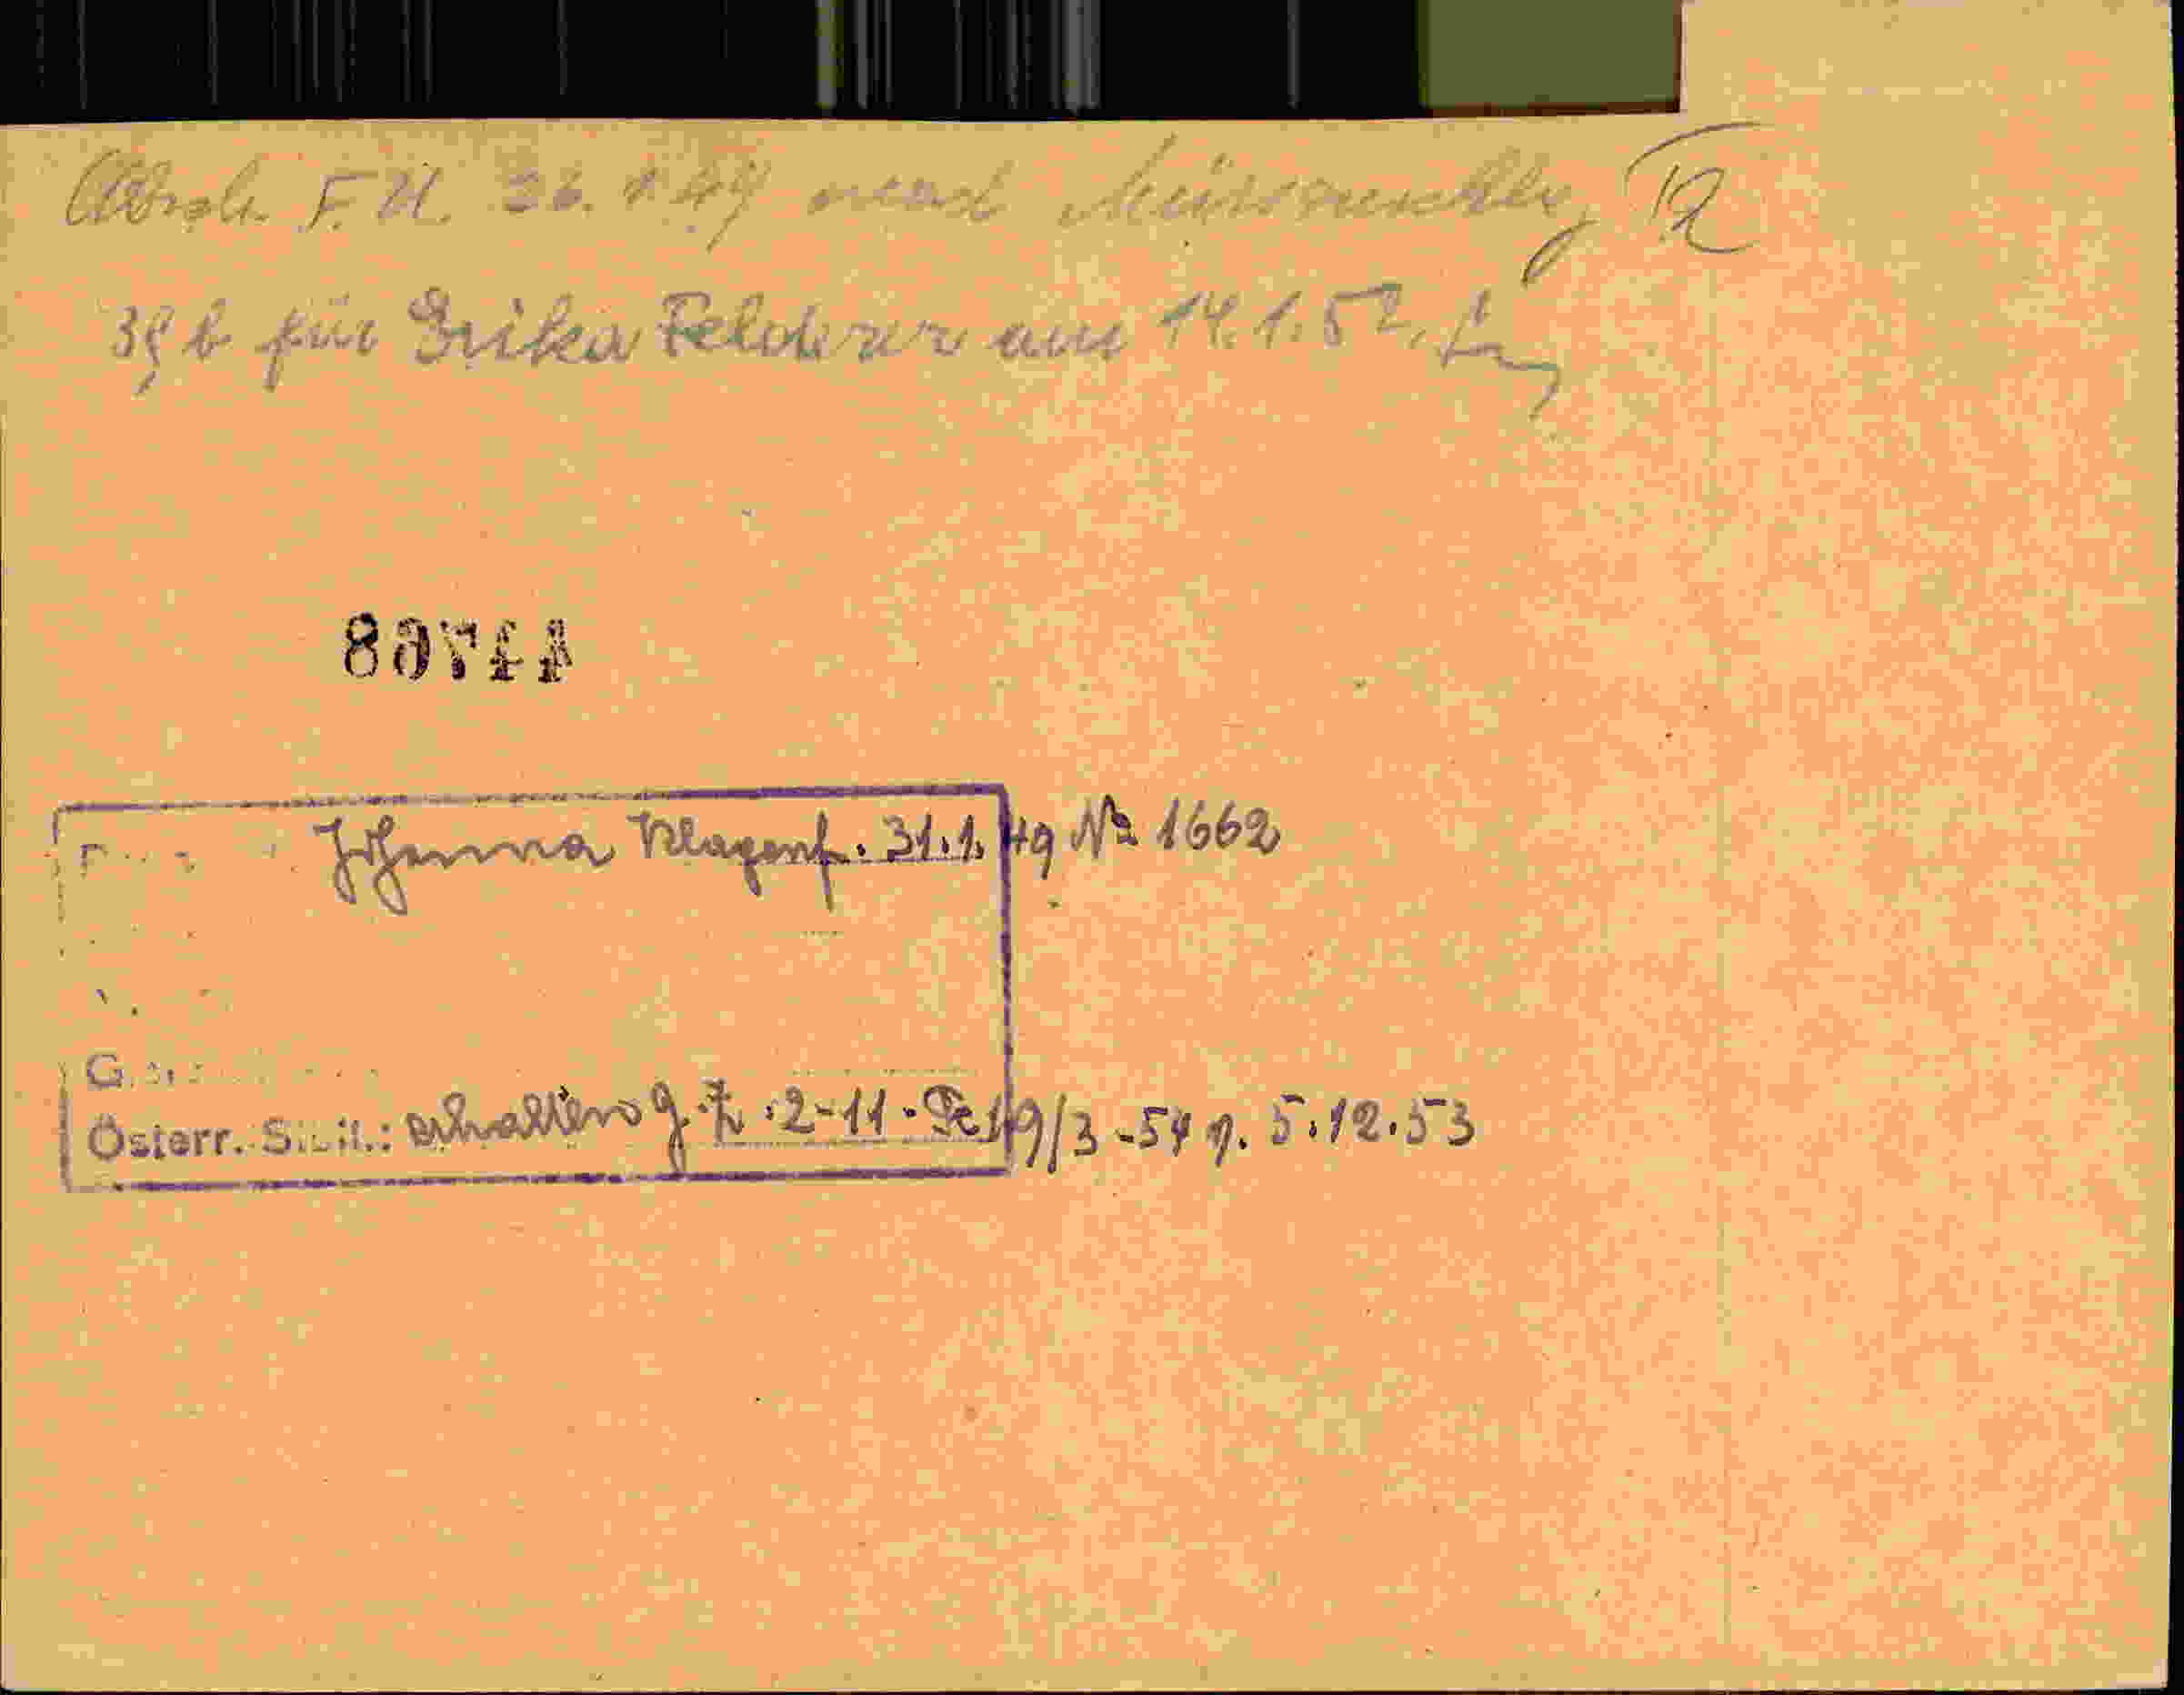 F.U. 26. 1. 49 nach Mürzzuschlag
39 b für Erika Felderer am 14.1.52.
Johanna Klagenf. 31.1.49 № 1662
G
Österr. erhalten g. Z. : 2-11. Fe 19/3-54 v. 5.12.53